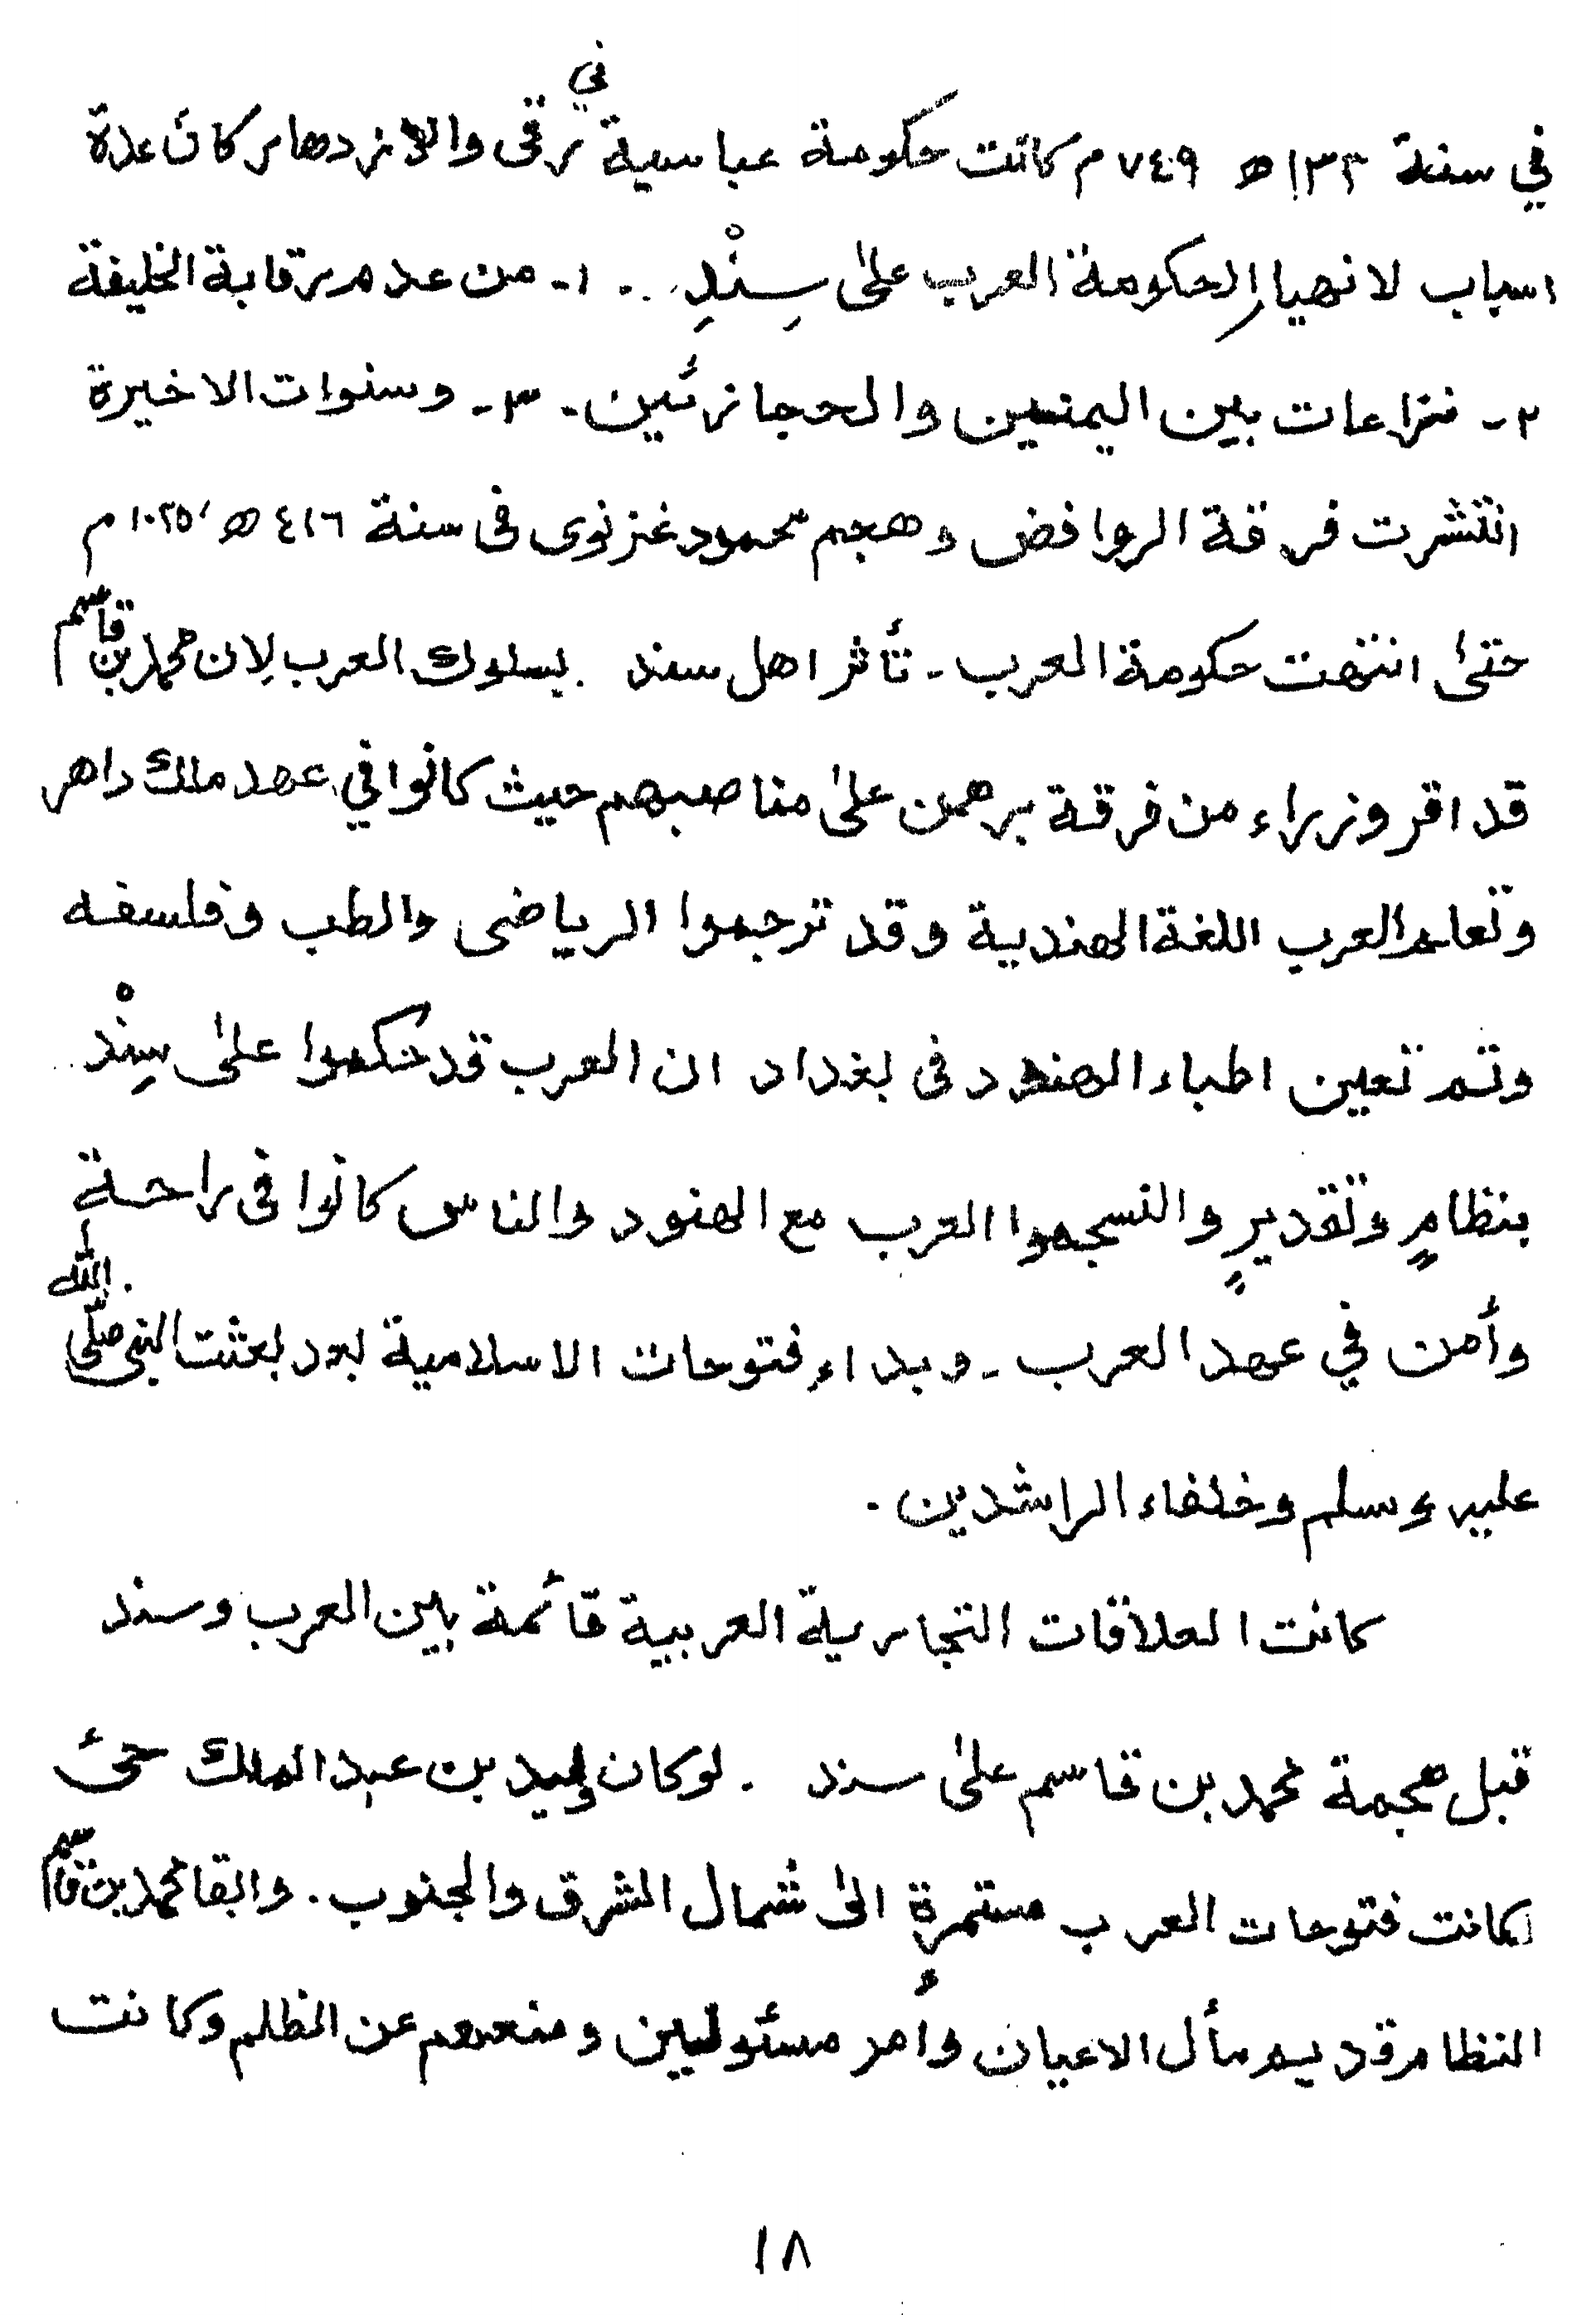 في سنة ١٣٢ھ ٧٤٩م كانت حكومة عباسية في ترقى والازدهار كان عدة
اسباب لانهيار الحكومة العرب علىٰ سِنْدِ .. ١ـ من عدم رقابة الخليفة
٢ـ نزاعات بين اليمنين والحجازئين ـ ٣ـ وسنوات الاخيرة
انتشرت فرقة الروافض وهجم محمود غزنوى فى سنة ٤١٦ھ / ١٠٢٥م
حتىٰ انتهت حكومة العرب ـ تأثر اهل سند . بسلوك العرب لِان محمد بن قاسم
قد اقر وزراء من فرقة برهمن علىٰ مناصبهم حيث كانوا في عهد ملك داهر
وتعلم العرب اللغة الهندية وقد ترجموا الرياضى والطب وفلسفه
وتم تعين اطباء الهنود فى بغداد ان العرب قد حكموا علىٰ سِنْد
بنظامٍ وتقديرٍ والنسجموا العرب مع الهنود والناس كانوا فى راحة
وأمن في عهد العرب ـ وبداء فتوحات الاسلامية بعد بعثت النبى صلّى الله
عليه وسلم وخلفاء الراشدين .
كانت العلاقات التجارية العربية قائمة بين العرب وسند
قبل هجمة محمد بن قاسم علىٰ سند . لوكان وليد بن عبد الملك حىّ
لكانت فتوحات العرب مستمرة الىٰ شمال المشرق والجنوب . وابقا محمد بن قاسم
النظام قديم مأل الاعيان وأمر مسئوليين ومنعهم عن الظلم وكانت
١٨